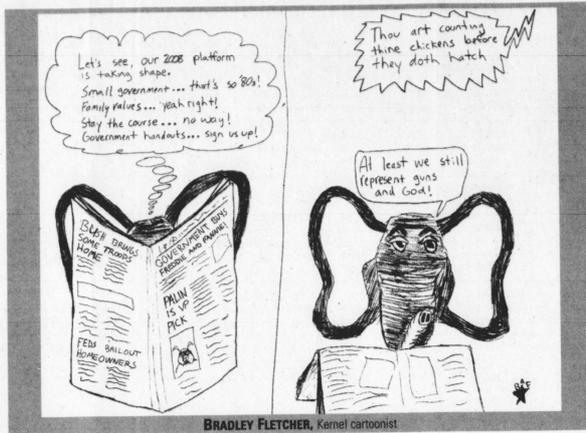 Let's see, our 2008 platform
is taking shape.
Small government... that's so '80s!
Family values... yeah right!
Stay the course... no way!
Government handouts... sign us up!
BUSH BRINGS
SOME TROOPS
HOME
FEDS BAILOUT
HOMEOWNERS
GOVERNMENT BUYS
FREDDIE AND FANNIE!
PALIN
IS VP
PICK
Thou art counting
thine chickens before
they doth hatch
At least we still
represent guns
and God!
BRADLEY FLETCHER, Kernel cartoonist